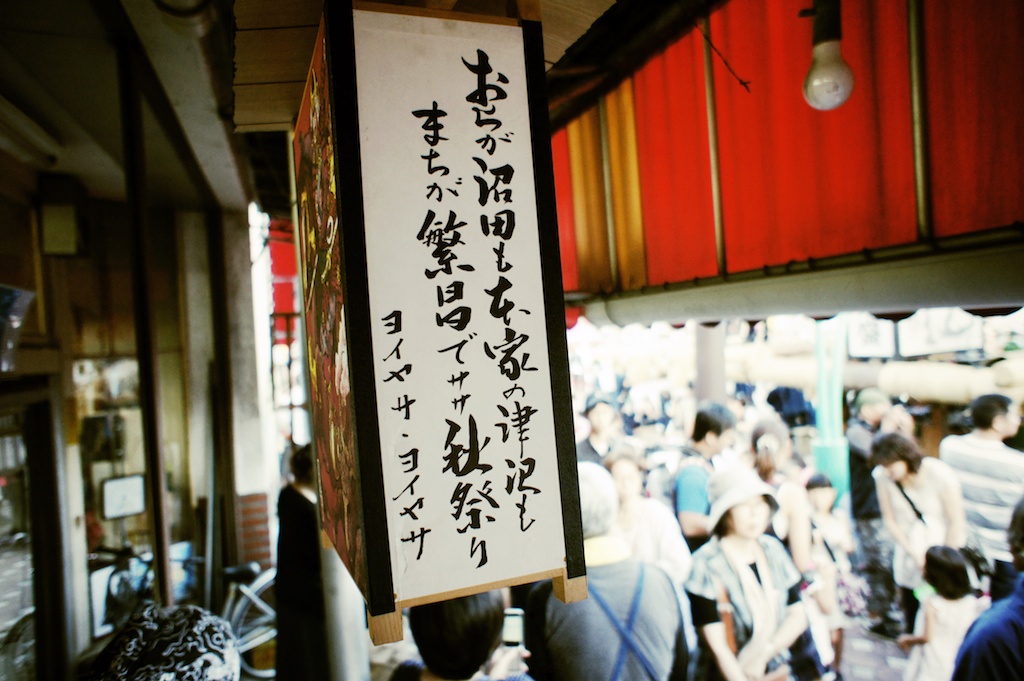 おらが沼田も本家の津沢も
まちが繁昌でササ秋祭り
ヨイヤサーヨイヤサ